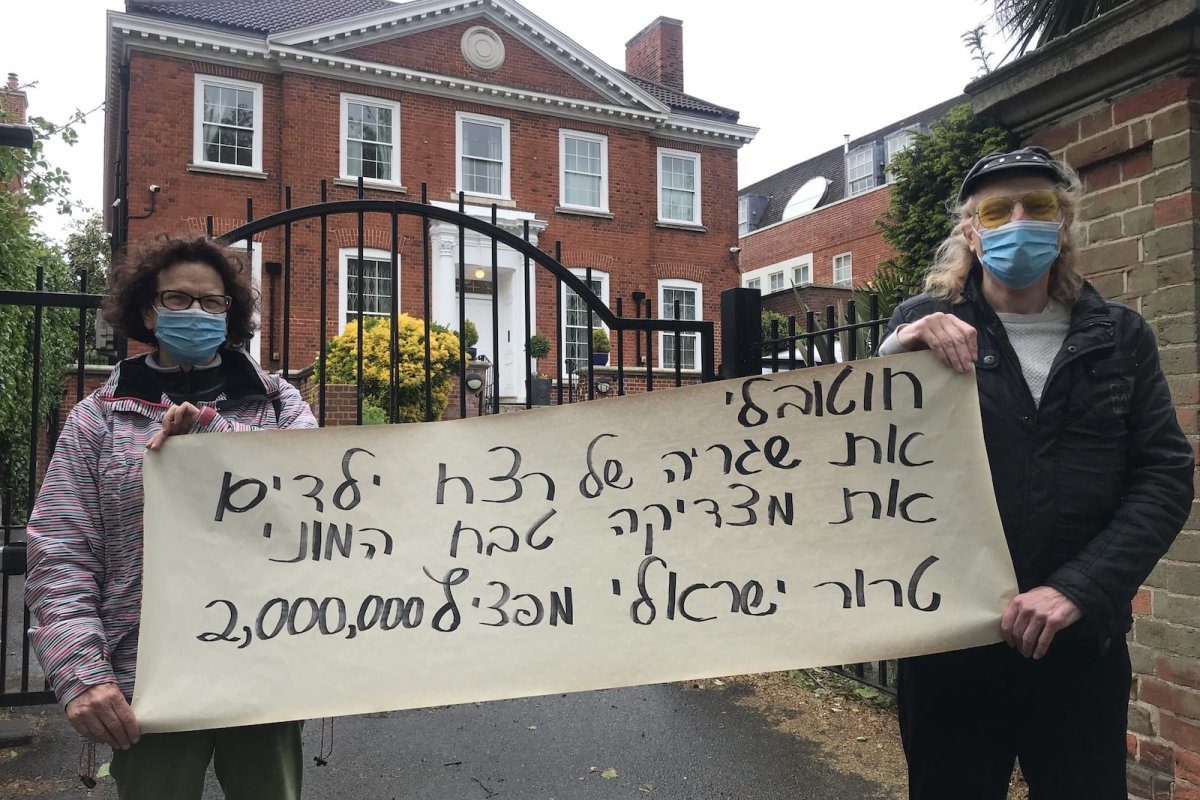 חוטובלי
את שגריה של רצח ילדים
את מצדיקה טבח המוני
טרור ישראלי מפציץ 2,000,000